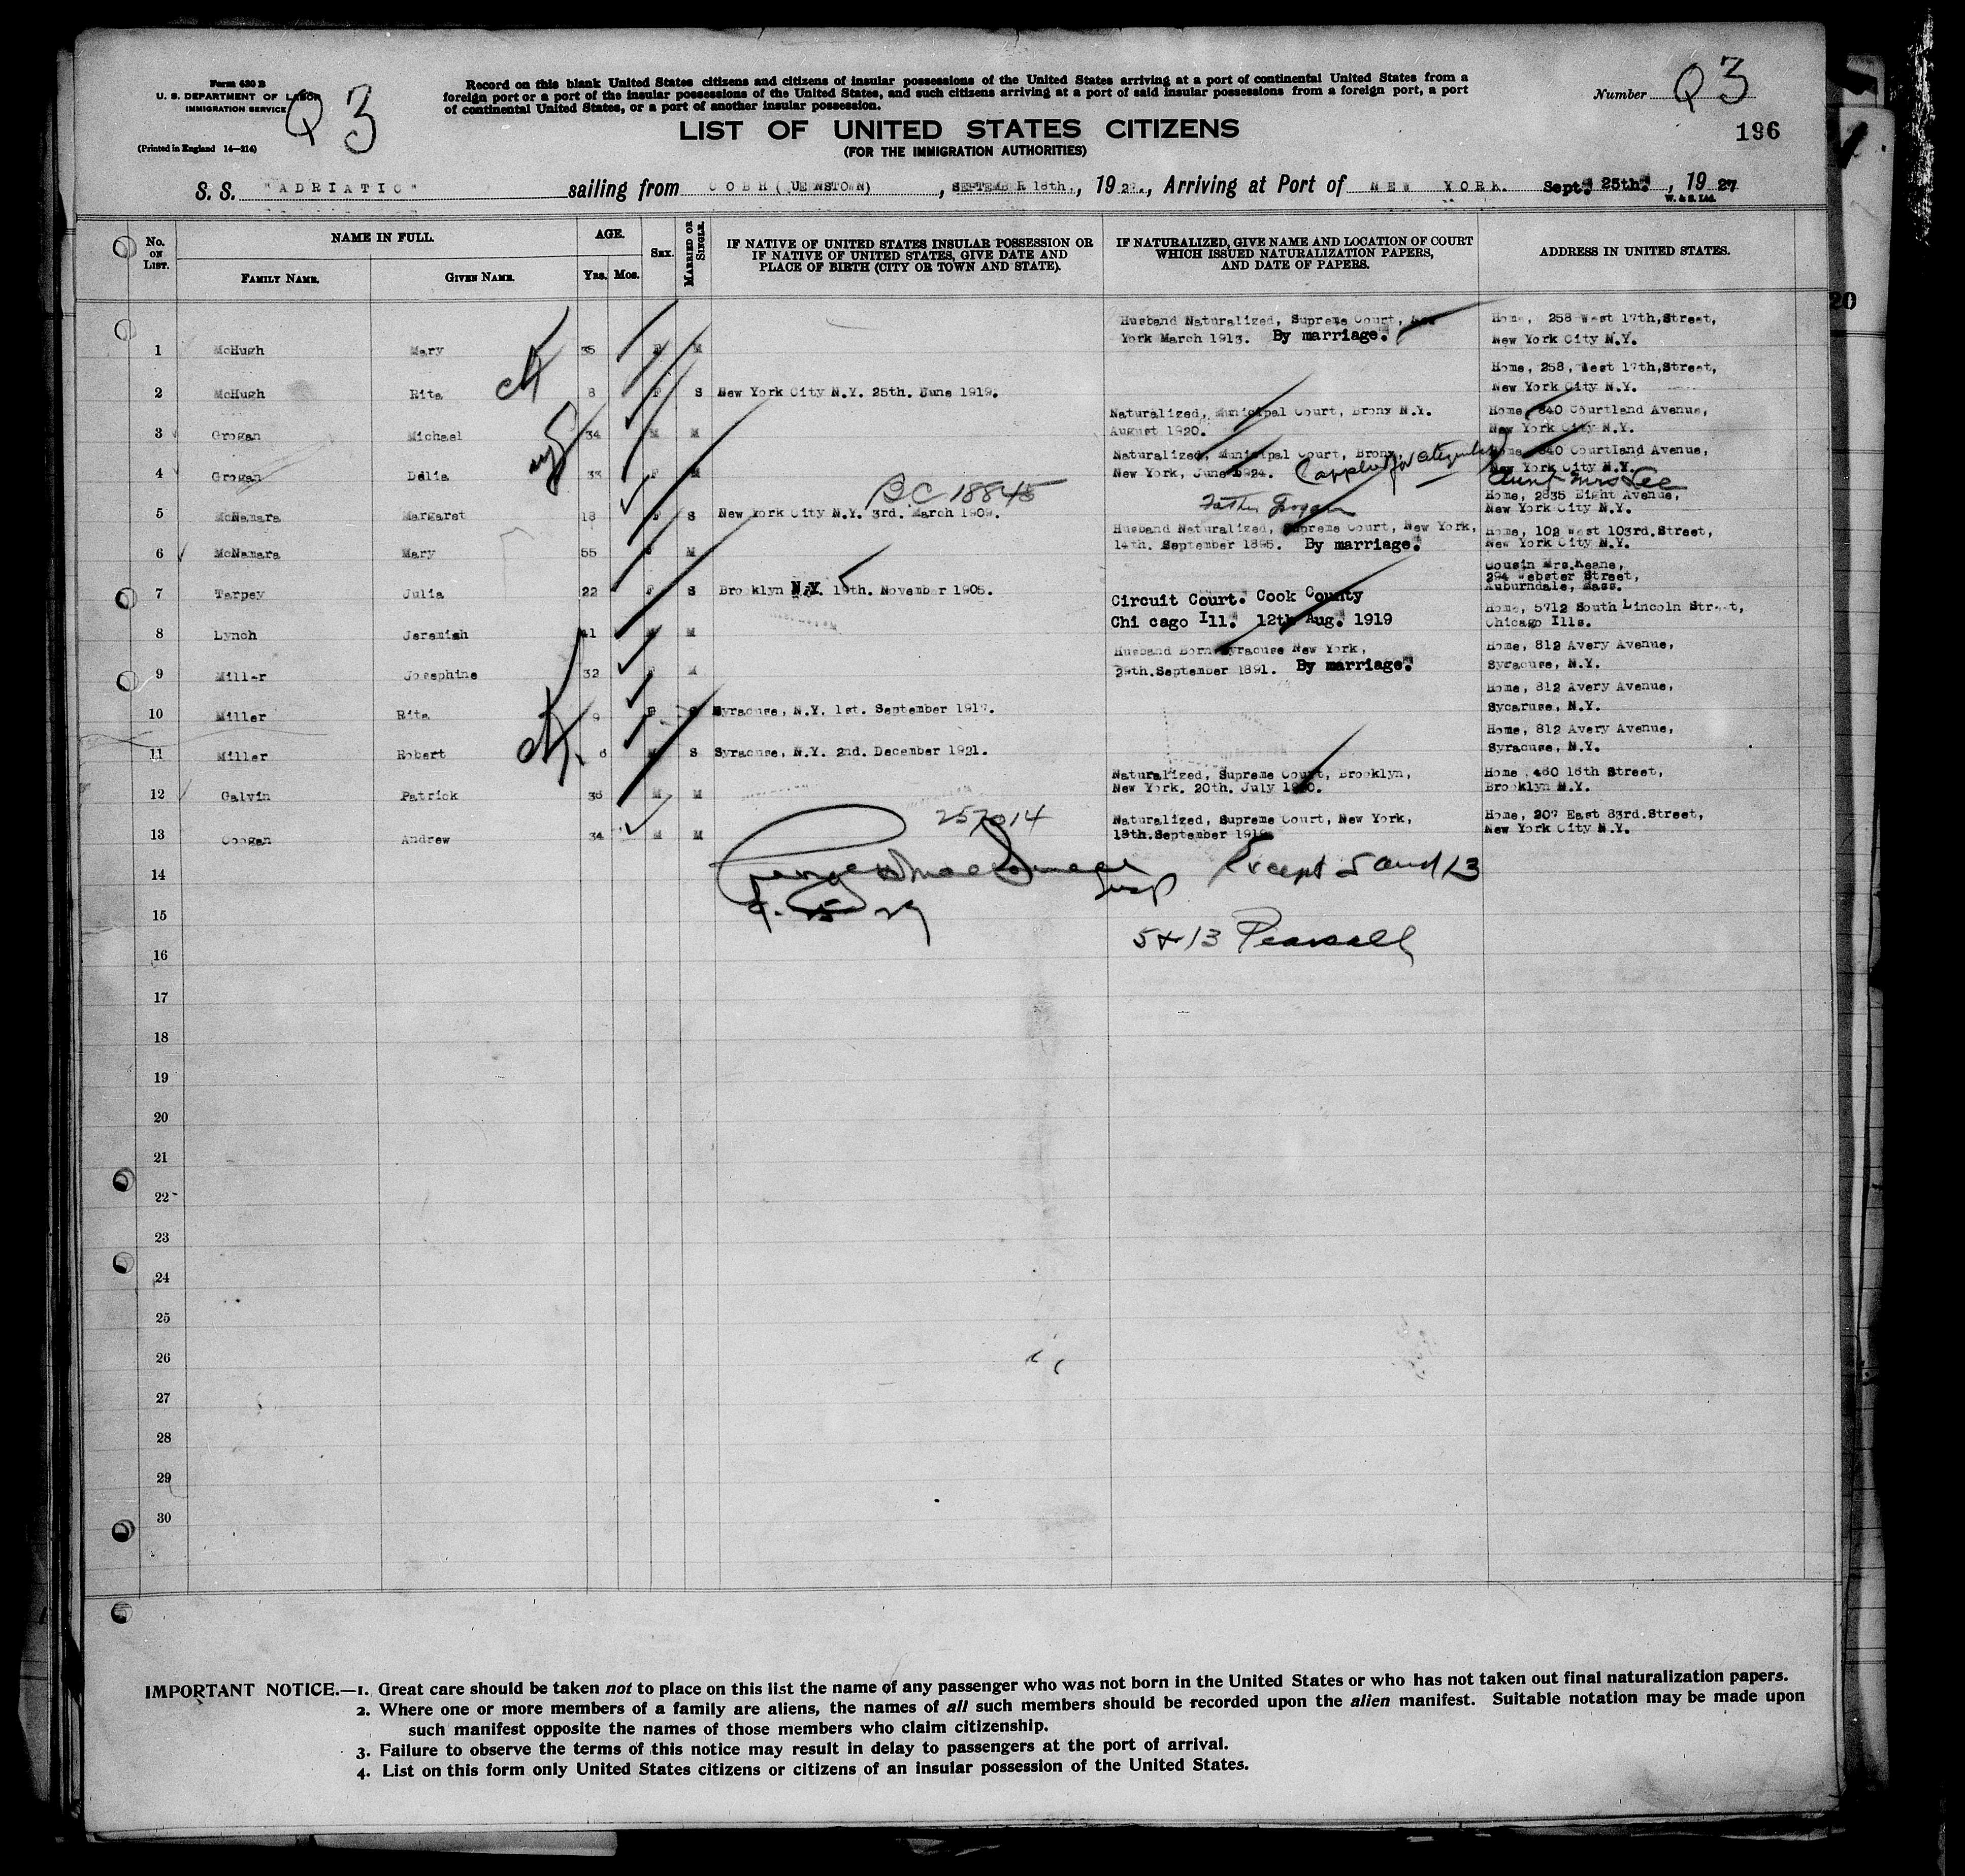 Form 630 B
U. S. DEPARTMENT OF LABOR
IMMIGRATION SERVICE
Q 3
(Printed in England 14—214)
Record on this blank United States citizens and citizens of insular possessions of the United States arriving at a port of continental United States from a
foreign port or a port of the insular possessions of the United States, and such citizens arriving at a port of said insular possessions from a foreign port, a port
of continental United States, or a port of another insular possession.
Number Q 3
LIST OF UNITED STATES CITIZENS
(FOR THE IMMIGRATION AUTHORITIES)
196
S. S. "ADRIATIC" sailing from COBH (QUEENSTOWN), SEPTEMBER 18th., 192, Arriving at Port of NEW YORK. Sept. 25th., 1927
W. & S. Ltd.
No. ON LIST.
NAME IN FULL.
FAMILY NAME.
GIVEN NAME.
AGE.
Yrs. Mos.
SEX.
MARRIED OR SINGLE.
IF NATIVE OF UNITED STATES INSULAR POSSESSION OR
IF NATIVE OF UNITED STATES, GIVE DATE AND
PLACE OF BIRTH (CITY OR TOWN AND STATE).
IF NATURALIZED, GIVE NAME AND LOCATION OF COURT
WHICH ISSUED NATURALIZATION PAPERS,
AND DATE OF PAPERS.
ADDRESS IN UNITED STATES.
20
1 McHugh Mary 35 F M Husband Naturalized, Supreme Court, New Home, 258 West 17th, Street,
York March 1913. By marriage. New York City N.Y.
2 McHugh Rita 8 F S New York City N.Y. 25th. June 1919. Home, 258, West 17th, Street,
New York City N.Y.
3 Grogan Michael 34 M M Naturalized, Municipal Court, Bronx N.Y. Home, 840 Courtland Avenue,
August 1920. New York City N.Y.
4 Grogan Delia 33 F M Naturalized, Municipal Court, Bronx, Home, 840 Courtland Avenue,
New York, June 1924. New York City N.Y.
Aunt Mrs Lee
BC 18845
Father Grogan
5 McNamara Margaret 18 F S New York City N.Y. 3rd. March 1909. Home, 2835 Eight Avenue,
New York City N.Y.
6 McNamara Mary 55 F M Husband Naturalized, Supreme Court, New York, Home, 102 West 103rd. Street,
14th. September 1895. By marriage. New York City N.Y.
7 Tarpey Julia 22 F S Brooklyn N.Y. 19th. November 1905. Cousin Mrs. Keane,
294 Webster Street,
Auburndale, Mass.
8 Lynch Jeremiah 41 M M Circuit Court. Cook County Home, 5712 South Lincoln Street,
Chi cago Ill. 12th Aug. 1919 Chicago Ills.
9 Miller Josephine 32 F M Husband Born Syracuse New York, Home, 812 Avery Avenue,
29th. September 1891. By marriage. Syracuse, N.Y.
10 Miller Rita 9 F S Syracuse, N.Y. 1st. September 1917. Home, 812 Avery Avenue,
Sycaruse, N.Y.
11 Miller Robert 6 M S Syracuse, N.Y. 2nd. December 1921. Home, 812 Avery Avenue,
Syracuse, N.Y.
12 Galvin Patrick 36 M M Naturalized, Supreme Court, Brooklyn, Home, 460 16th Street,
New York. 20th. July Brooklyn N.Y.
257014
13 Coogan Andrew 34 M M Naturalized, Supreme Court, New York, Home, 207 East 83rd. Street,
18th. September 1919 New York City N.Y.
14 Insp Except 5 and 13
15
5 & 13 Pearsall
16
17
18
19
20
21
22
23
24
25
26
27
28
29
30
IMPORTANT NOTICE.—1. Great care should be taken not to place on this list the name of any passenger who was not born in the United States or who has not taken out final naturalization papers.
2. Where one or more members of a family are aliens, the names of all such members should be recorded upon the alien manifest. Suitable notation may be made upon
such manifest opposite the names of those members who claim citizenship.
3. Failure to observe the terms of this notice may result in delay to passengers at the port of arrival.
4. List on this form only United States citizens or citizens of an insular possession of the United States.